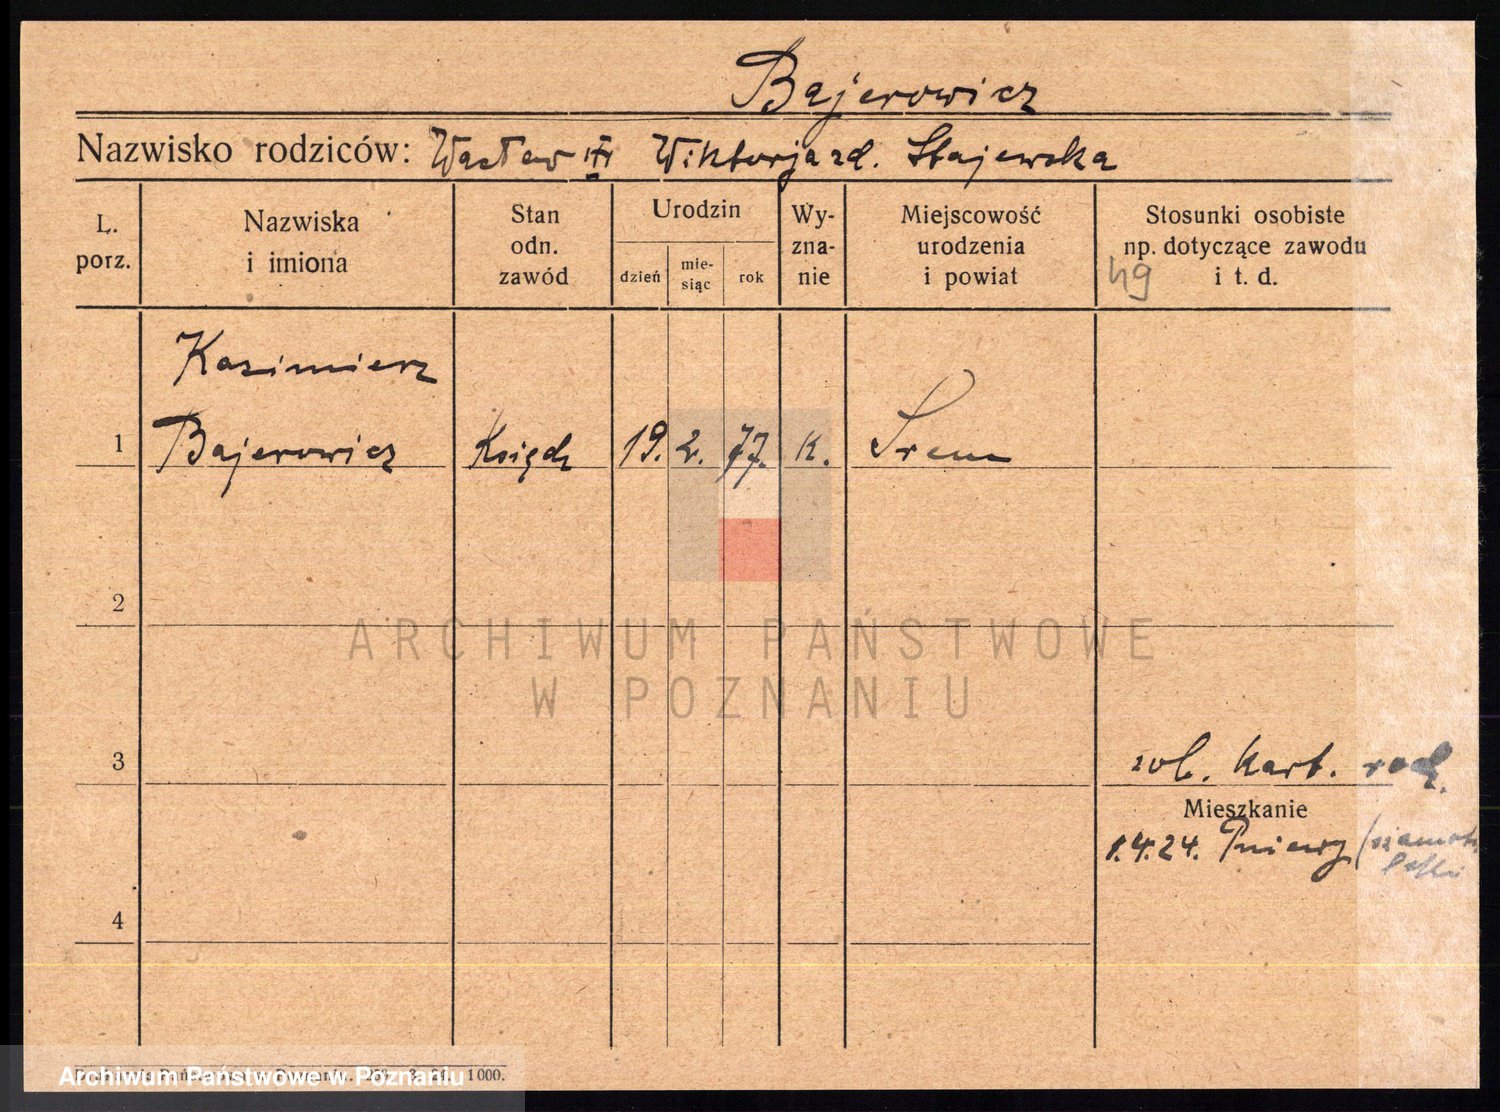 Bajerowicz
Nazwisko rodziców: Wacław Wiktorja zd. Stajewska
L. porz.
Nazwiska i imiona
Stan odn. zawód
Urodzin
dzień
mie- siąc
rok
Wy- zna- nie
Miejscowość urodzenia i powiat
Stosunki osobiste np. dotyczące zawodu i t. d.
49
Kazimierz
1 Bajerowicz Ksiądz 19. 2. 77. K. Śrem
2
ARCHIWUM PAŃSTWOWE
W POZNANIU
3 zob. kart. rodz.
Mieszkanie
1.4.24. Pniewy
4
1000.
Archiwum Państwowe w Poznaniu